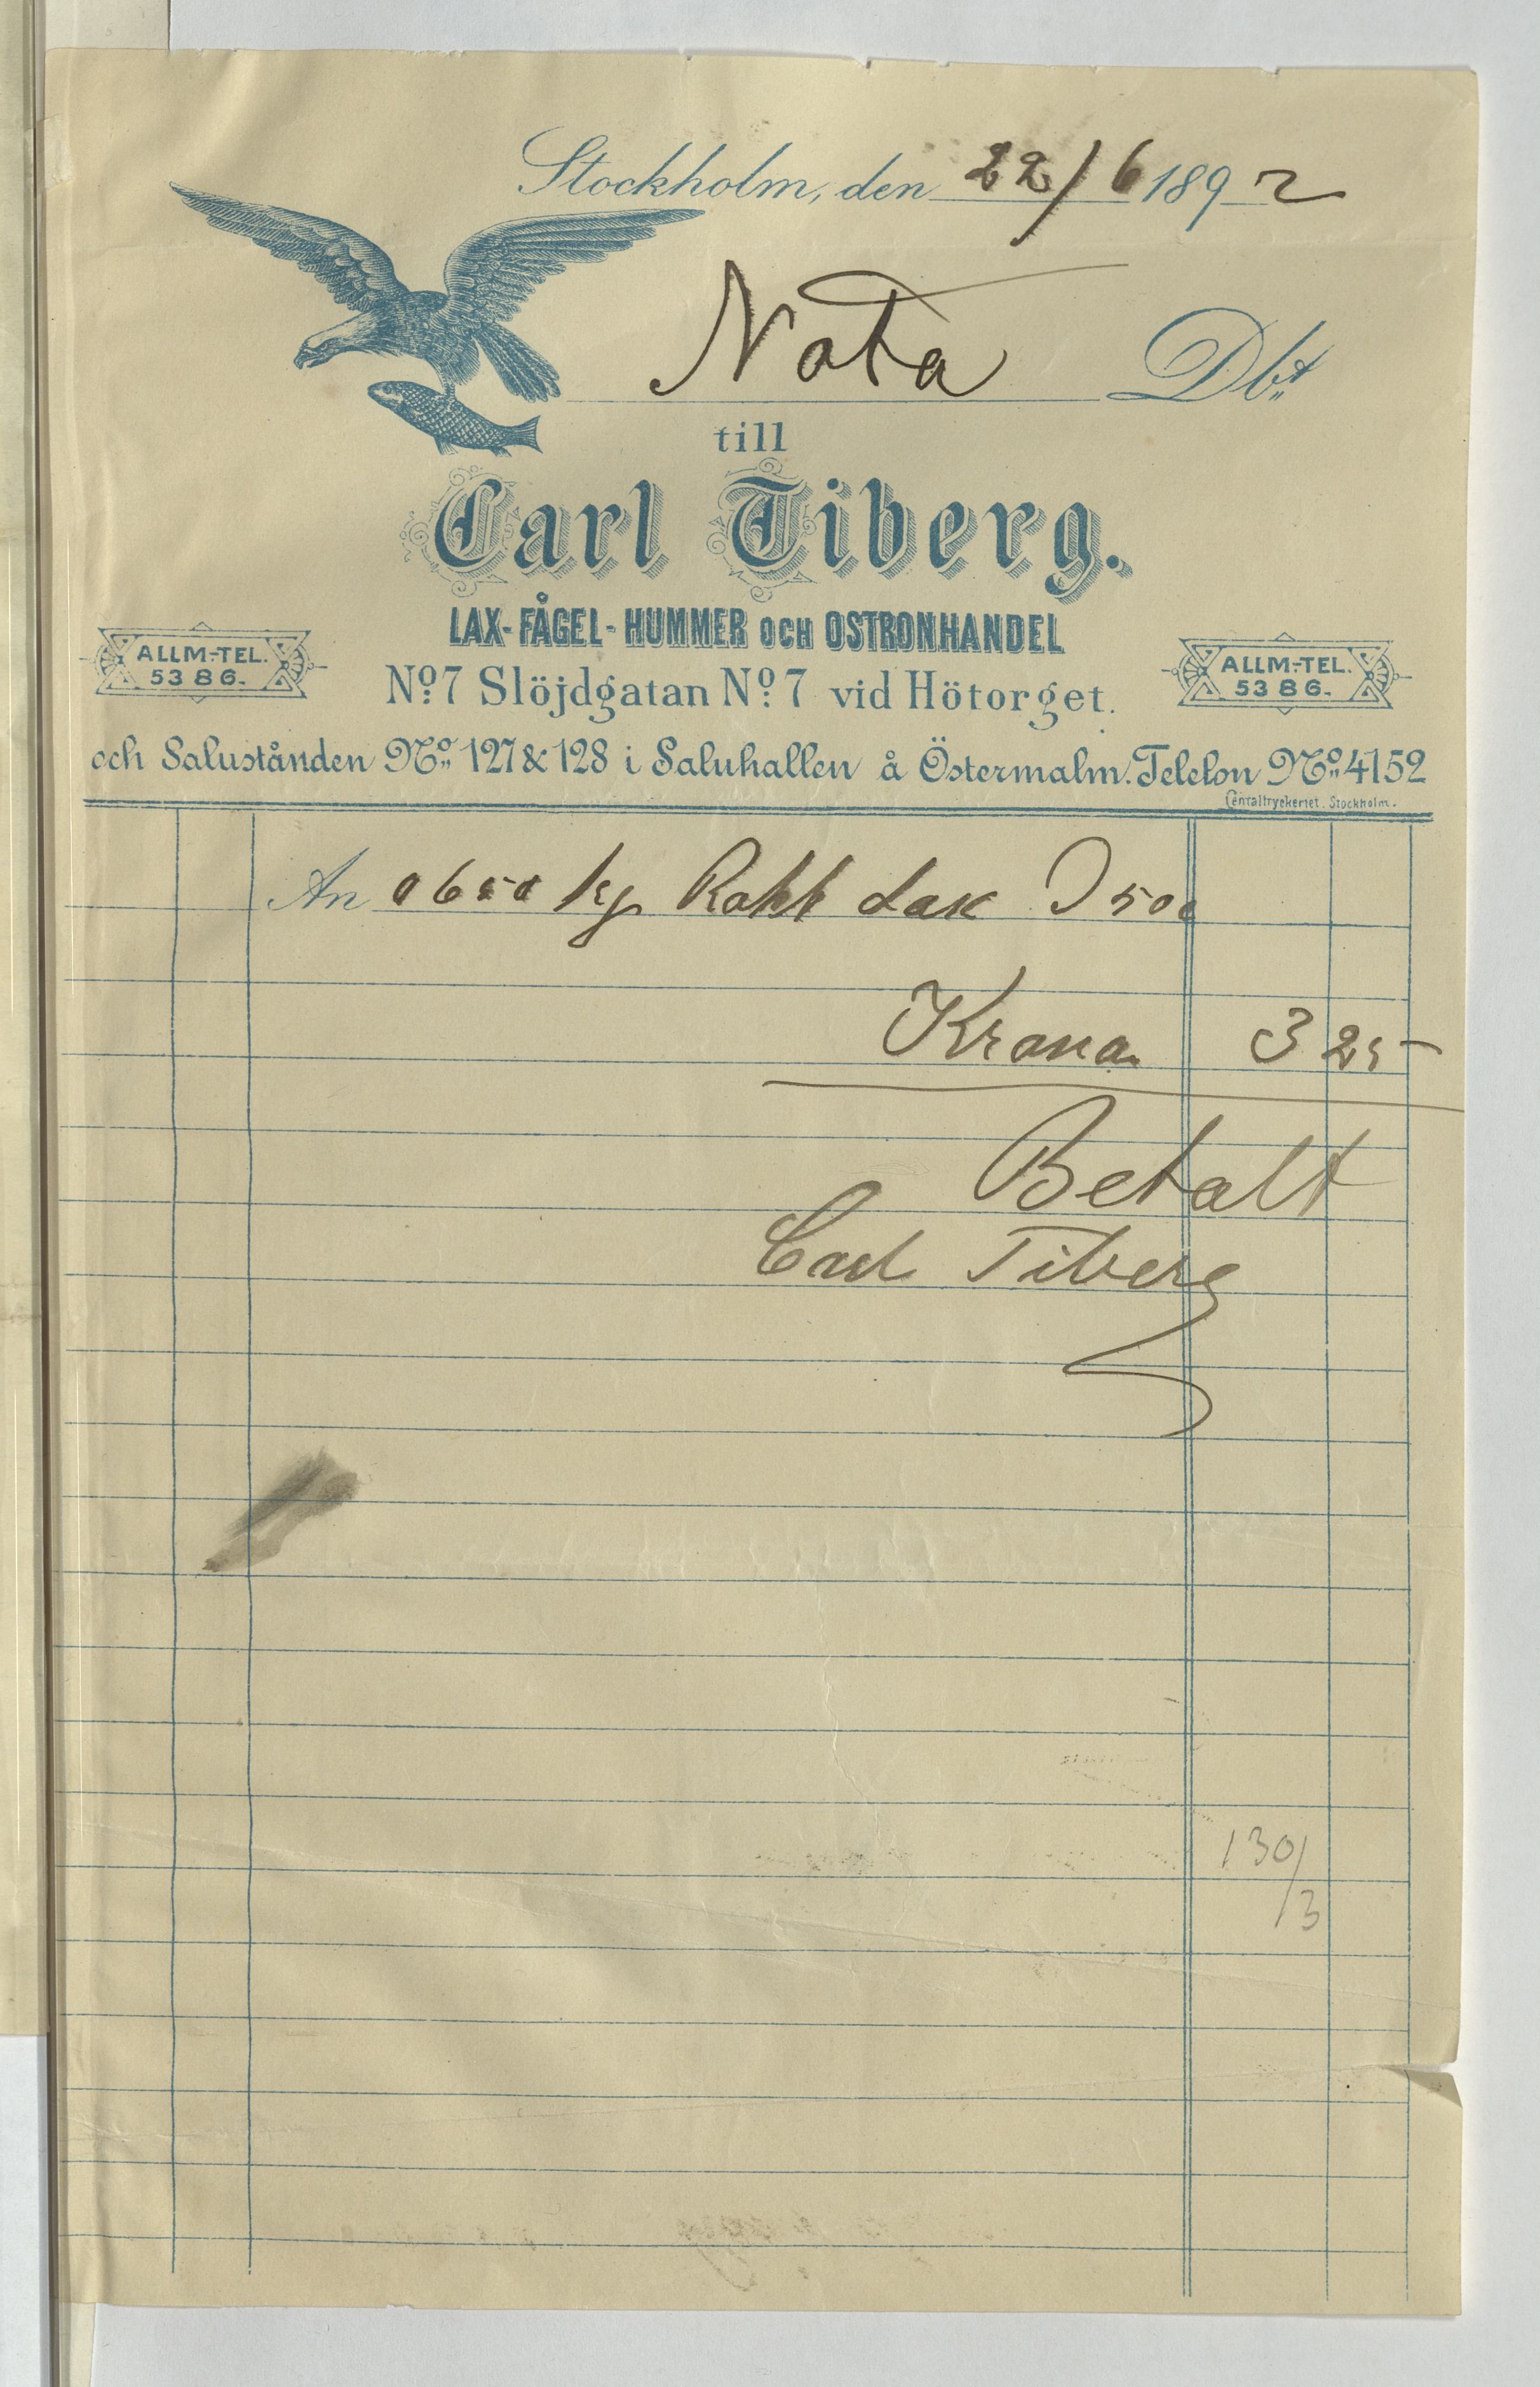 Stockholm, den 22/6 1892
Nota Dbt
till
Carl Tiberg.
LAX- FÅGEL- HUMMER OCH OSTRONHANDEL
ALLM-TEL. 5386.
No. 7 Slöjdgatan No. 7 vid Hötorget.
ALLM-TEL. 5386.
och Saluständen No. 127 & 128 i Saluhallen å Östermalm. Telefon No. 4152
Centraltryckeriet. Stockholm.
An 0650 kg Rökt Lax 500
Kronor 3 25
Betalt
Carl Tiberg
130/3